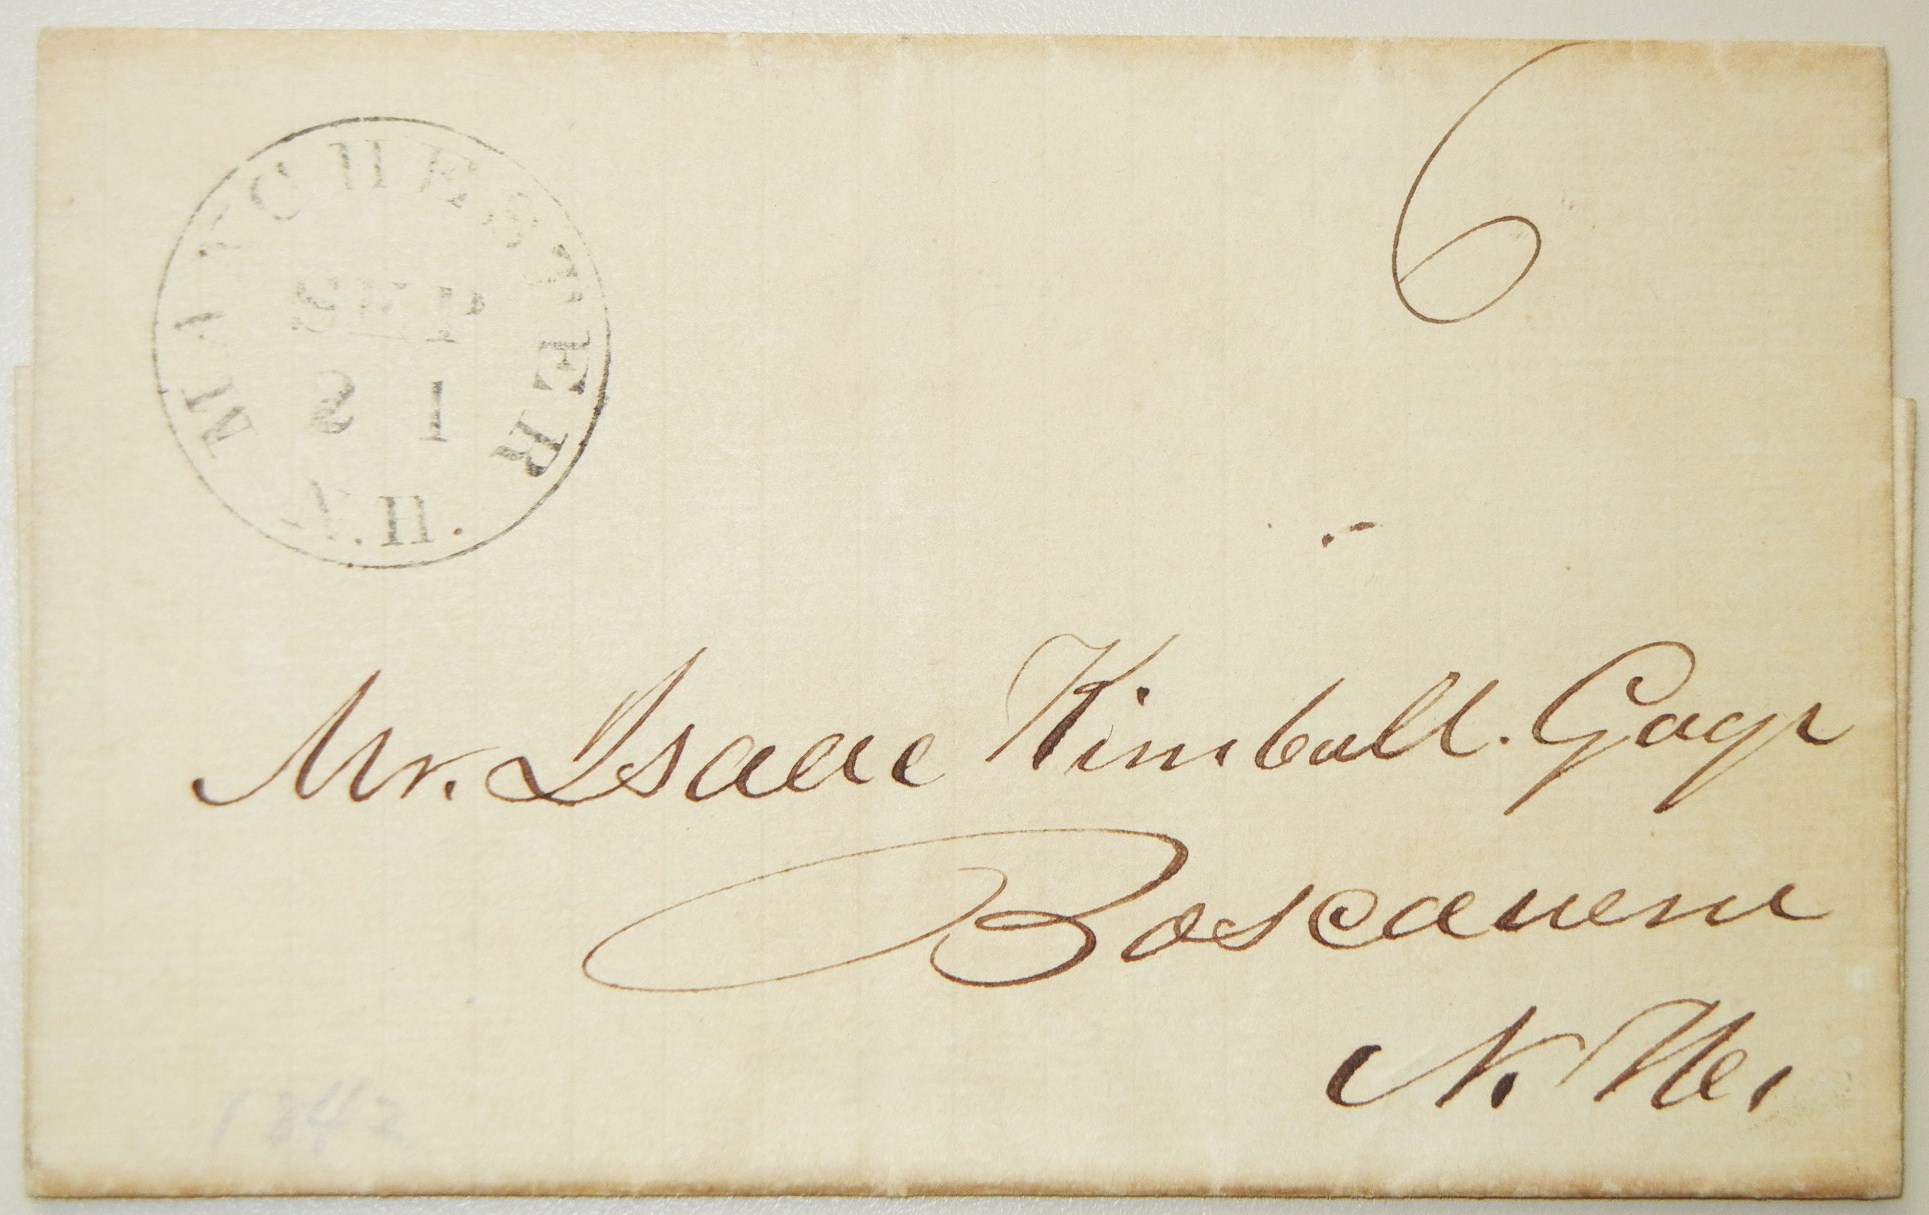 MANCHESTER
SEP
21
N.H.
6
Mr. Isaac Kimball Gage
Boscawen
N. H.
1842